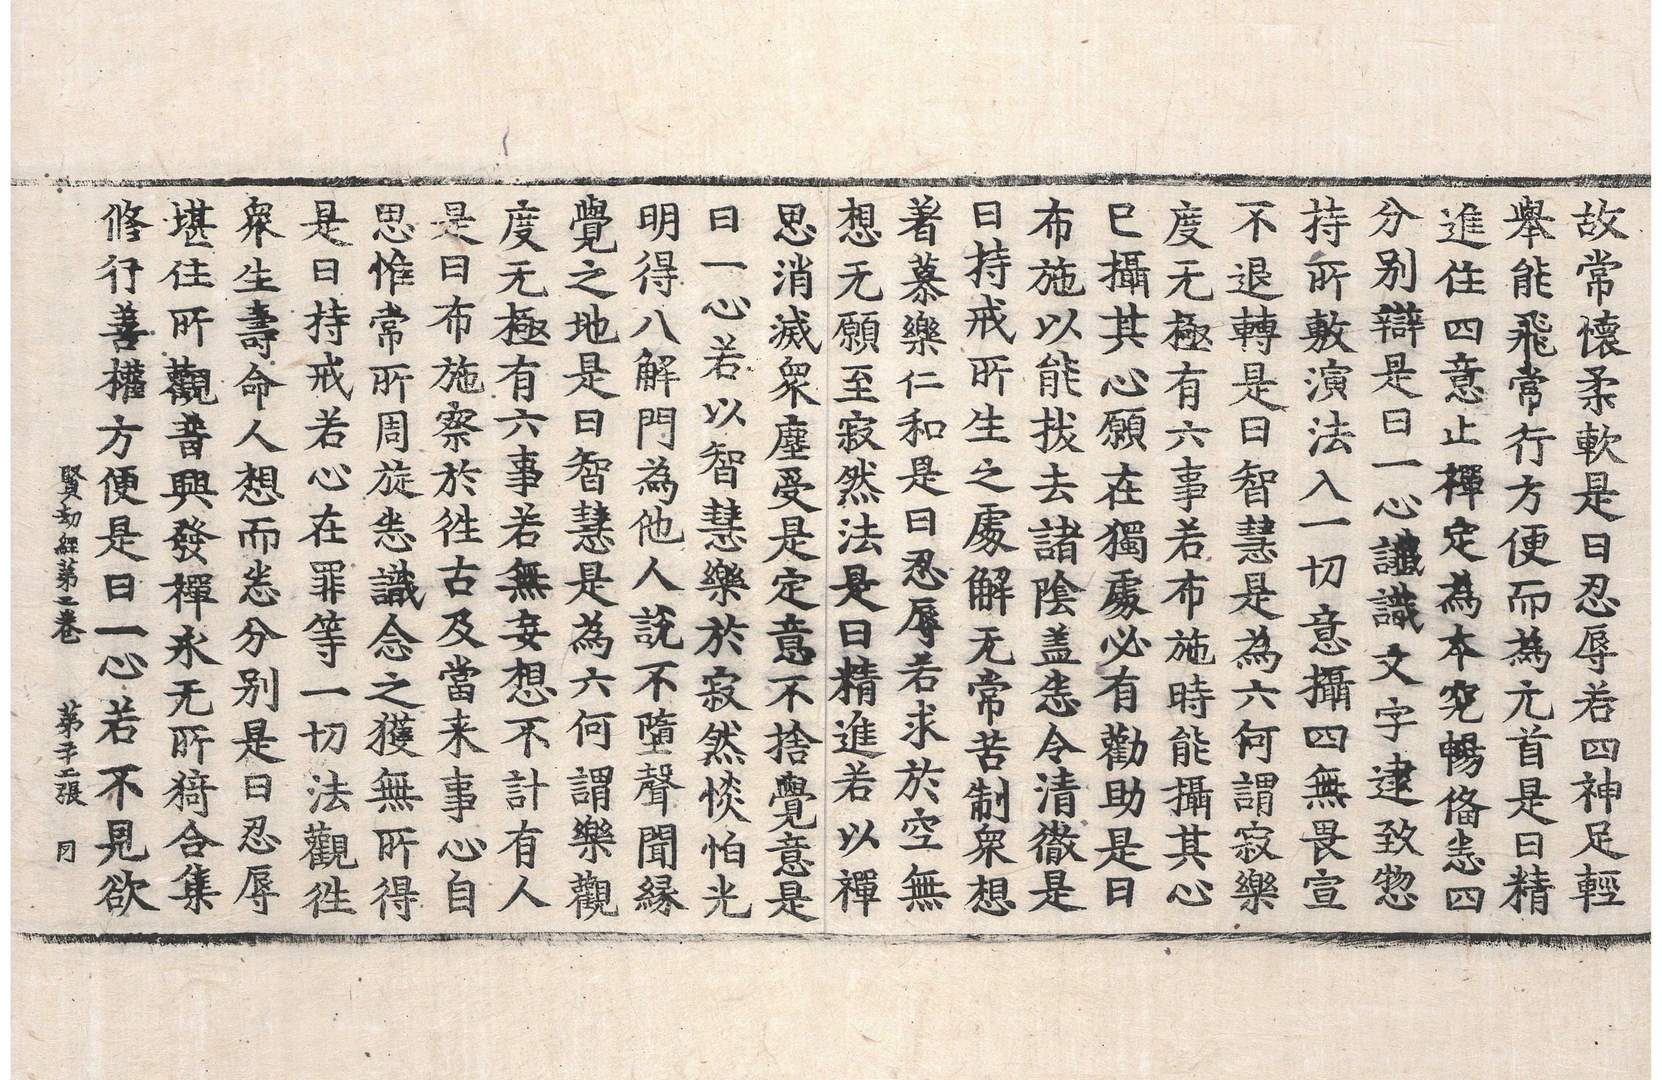 故常懷柔軟是曰忍辱若四神足輕
舉能飛常行方便而為元首是曰精
進住四意止禪定為本究暢俻恚四
分别辯是曰一心讖識文字逮致惣
持所敷演法入一切意攝四無畏宣
不退轉是曰智慧是為六何謂寂樂
度无極有六事若布施時能攝其心
已攝其心願在獨處必有勸助是曰
布施以能拔去諸陰盖恚令清徹是
曰持戒所生之處解无常苦制衆想
著慕樂仁和是曰忍辱若求於空無
想无願至寂然法是曰精進若以禪
思消滅衆塵受是定意不捨覺意是
曰一心若以智慧樂於寂然惔怕光
明得八解門為他人說不墮聲聞緣
覺之地是曰智慧是為六何謂樂觀
度无極有六事若無妄想不計有人
是曰布施察於徃古及當来事心自
思惟常所周旋恚識念之獲無所得
是曰持戒若心在罪等一切法觀徃
衆生壽命人想而恚分别是曰忍辱
堪住所觀普興發禪永无所猗合集
修行善權方便是曰一心若不見欲
賢劫經第二卷 第二張 同